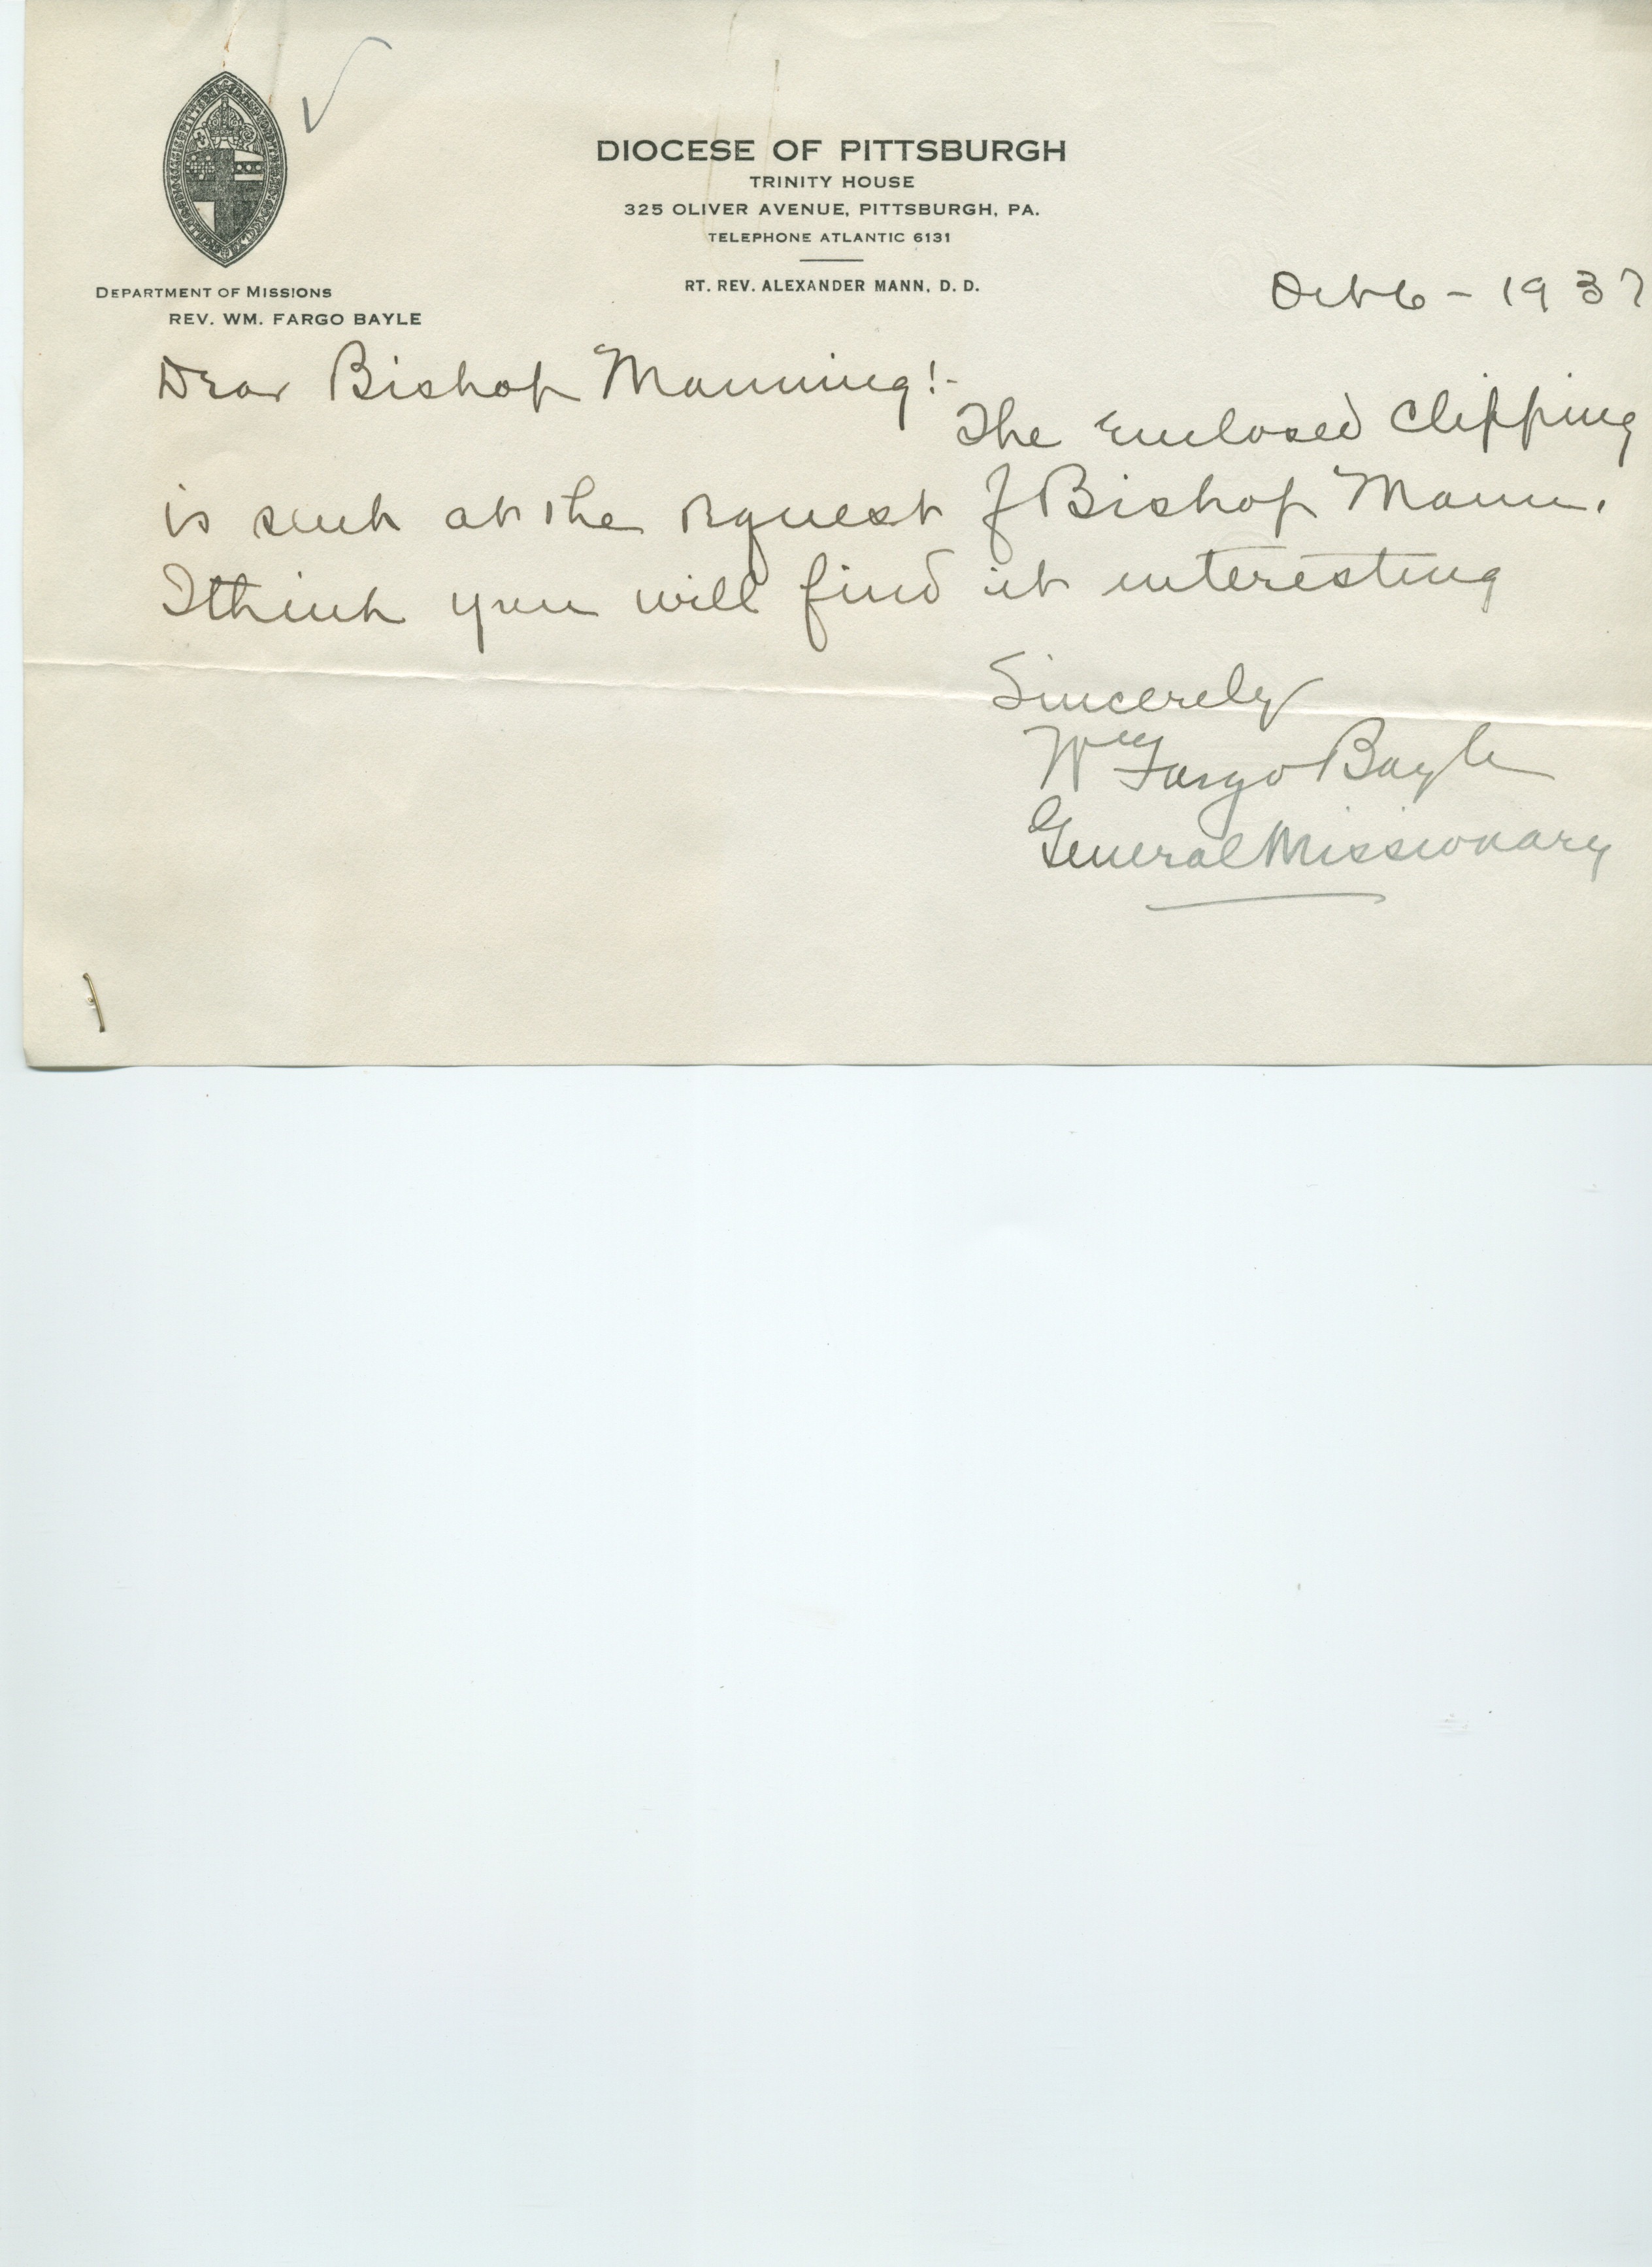 DIOCESE OF PITTSBURGH
TRINITY HOUSE
325 OLIVER AVENUE, PITTSBURGH, PA.
TELEPHONE ATLANTIC 6131
RT. REV. ALEXANDER MANN, D. D.
DEPARTMENT OF MISSIONS
REV. WM. FARGO BAYLE
Oct 6 - 1937
Dear Bishop Manning!-
The enclosed clipping
is sent at the request of Bishop Mann.
I think you will find it interesting
Sincerely
Wm Fargo Bayle
General Missionary